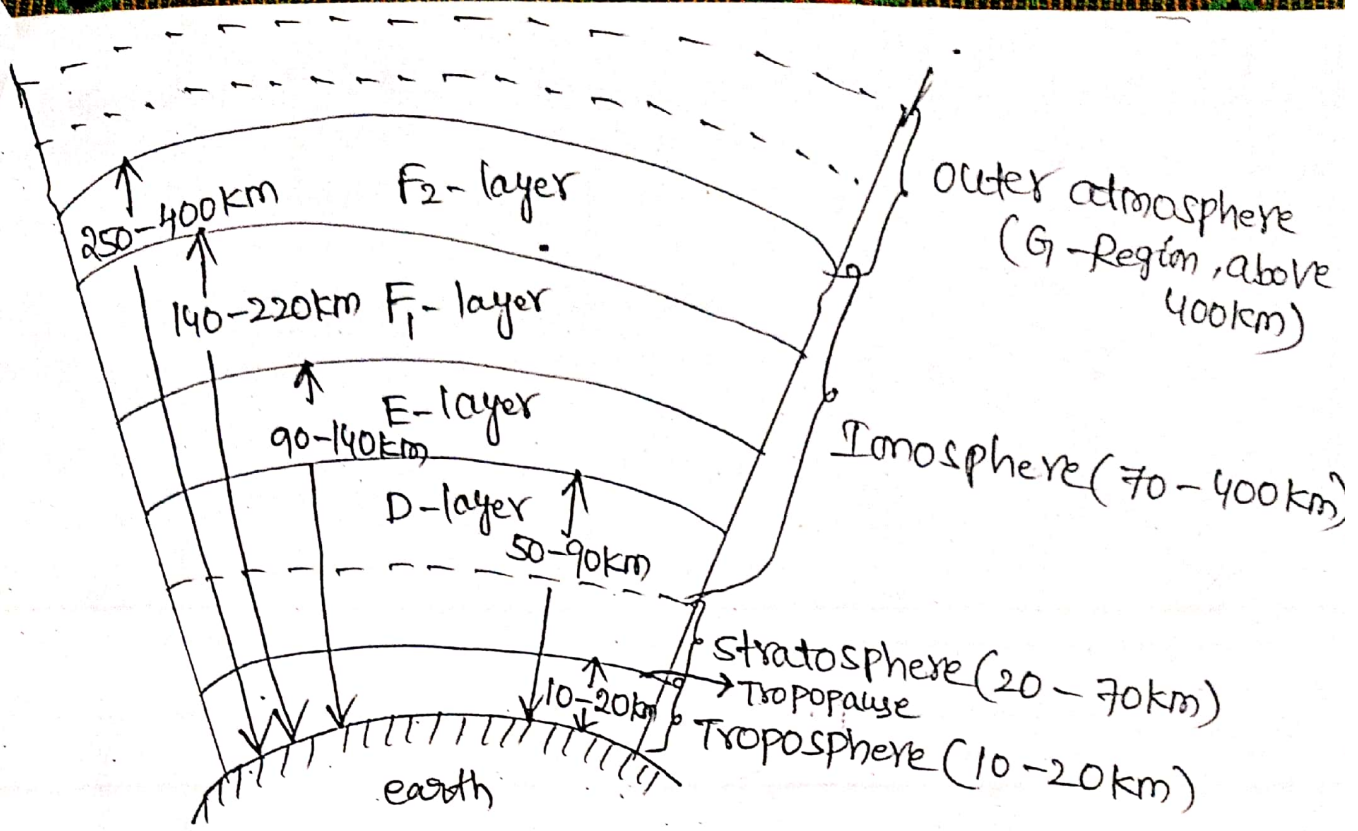 F2-layer
250-400km
140-220km F1-layer
E-layer
90-140km
D-layer
50-90km
10-20km
earth
outer atmosphere
(G-Region, above
400km)
Ionosphere (70-400km)
Stratosphere (20-70km)
Tropopause
Troposphere (10-20km)